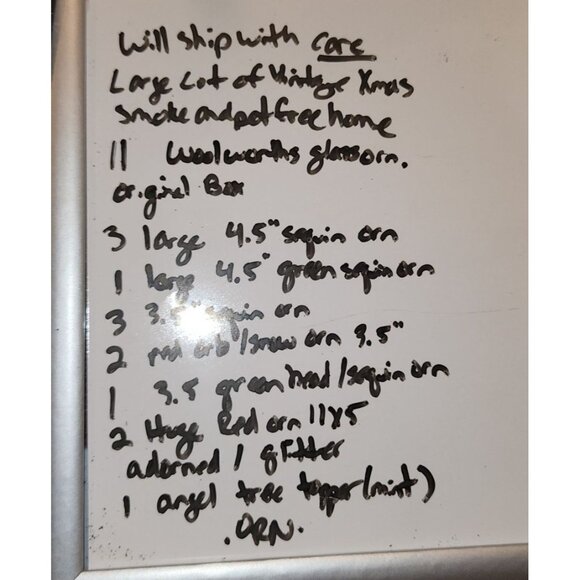 Will ship with care
Large Lot of Vintage Xmas
smoke and pet free home
11 Woolworths glass orn.
original Box
3 large 4.5" sequin orn
1 large 4.5" green sequin orn
3 3.5" sequin orn
2 orb/snow orn 3.5"
1 3.5 green bead/sequin orn
2 Huge Red orn 11x5
adorned / glitter
1 angel tree topper (mint)
.ORN.